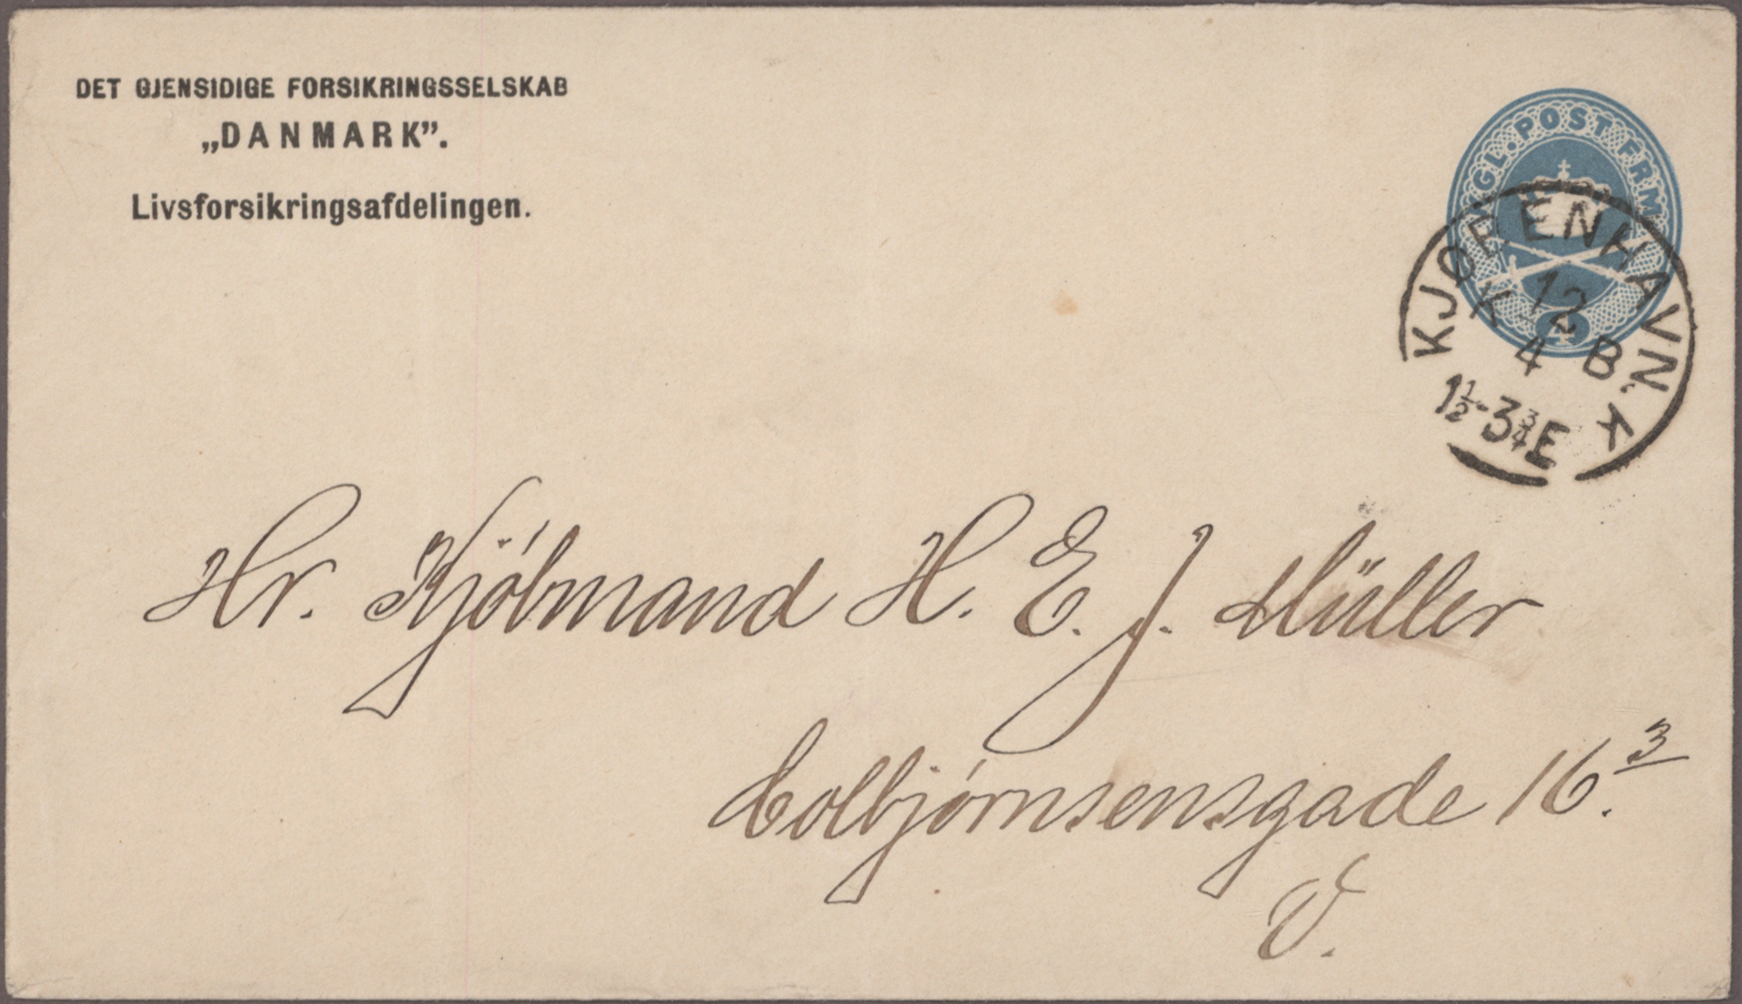 DET GJENSIDIGE FORSIKRINGSSELSKAB
„DANMARK”.
Livsforsikringsafdelingen.
KGL. POST FRM.
4
KJØBENHAVN. K
K. 12 B.
4
1½-3¾E
Hr. Kjöbmand H. E. J. Müller
Colbjørnsensgade 16.3
V.